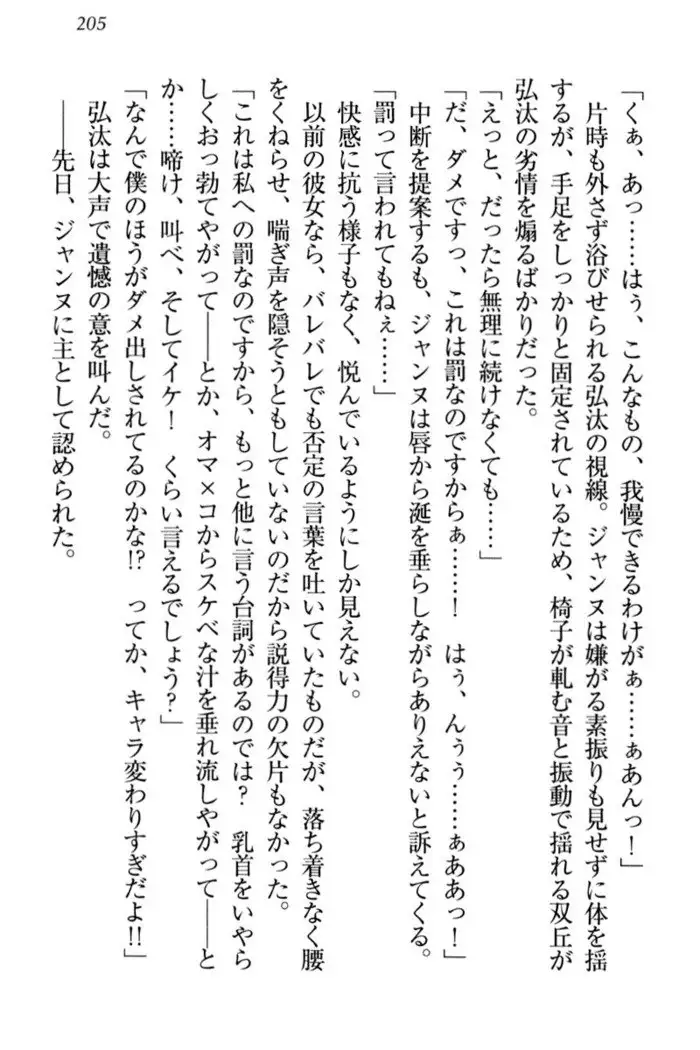 205
「くぁ、あっ……はぅ、こんなもの、我慢できるわけがぁ……ぁあんっ！」
片時も外さず浴びせられる弘汰の視線。ジャンヌは嫌がる素振りも見せずに体を揺
するが、手足をしっかりと固定されているため、椅子が軋む音と振動で揺れる双丘が
弘汰の劣情を煽るばかりだった。
「えっと、だったら無理に続けなくても……」
「だ、ダメですっ、これは罰なのですからぁ……！　はぅ、んぅぅ……ぁああっ！」
中断を提案するも、ジャンヌは唇から涎を垂らしながらありえないと訴えてくる。
「罰って言われてもねぇ……」
快感に抗う様子もなく、悦んでいるようにしか見えない。
以前の彼女なら、バレバレでも否定の言葉を吐いていたものだが、落ち着きなく腰
をくねらせ、喘ぎ声を隠そうともしていないのだから説得力の欠片もなかった。
「これは私への罰なのですから、もっと他に言う台詞があるのでは？　乳首をいやら
しくおっ勃てやがって――とか、オマ×コからスケベな汁を垂れ流しやがって――と
か……啼け、叫べ、そしてイケ！　くらい言えるでしょう？」
「なんで僕のほうがダメ出しされてるのかな!?　ってか、キャラ変わりすぎだよ!!」
弘汰は大声で遺憾の意を叫んだ。
――先日、ジャンヌに主として認められた。